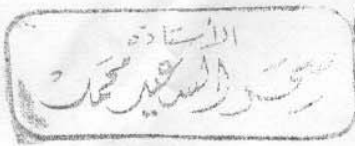 الأستاذة
السعيد محمد